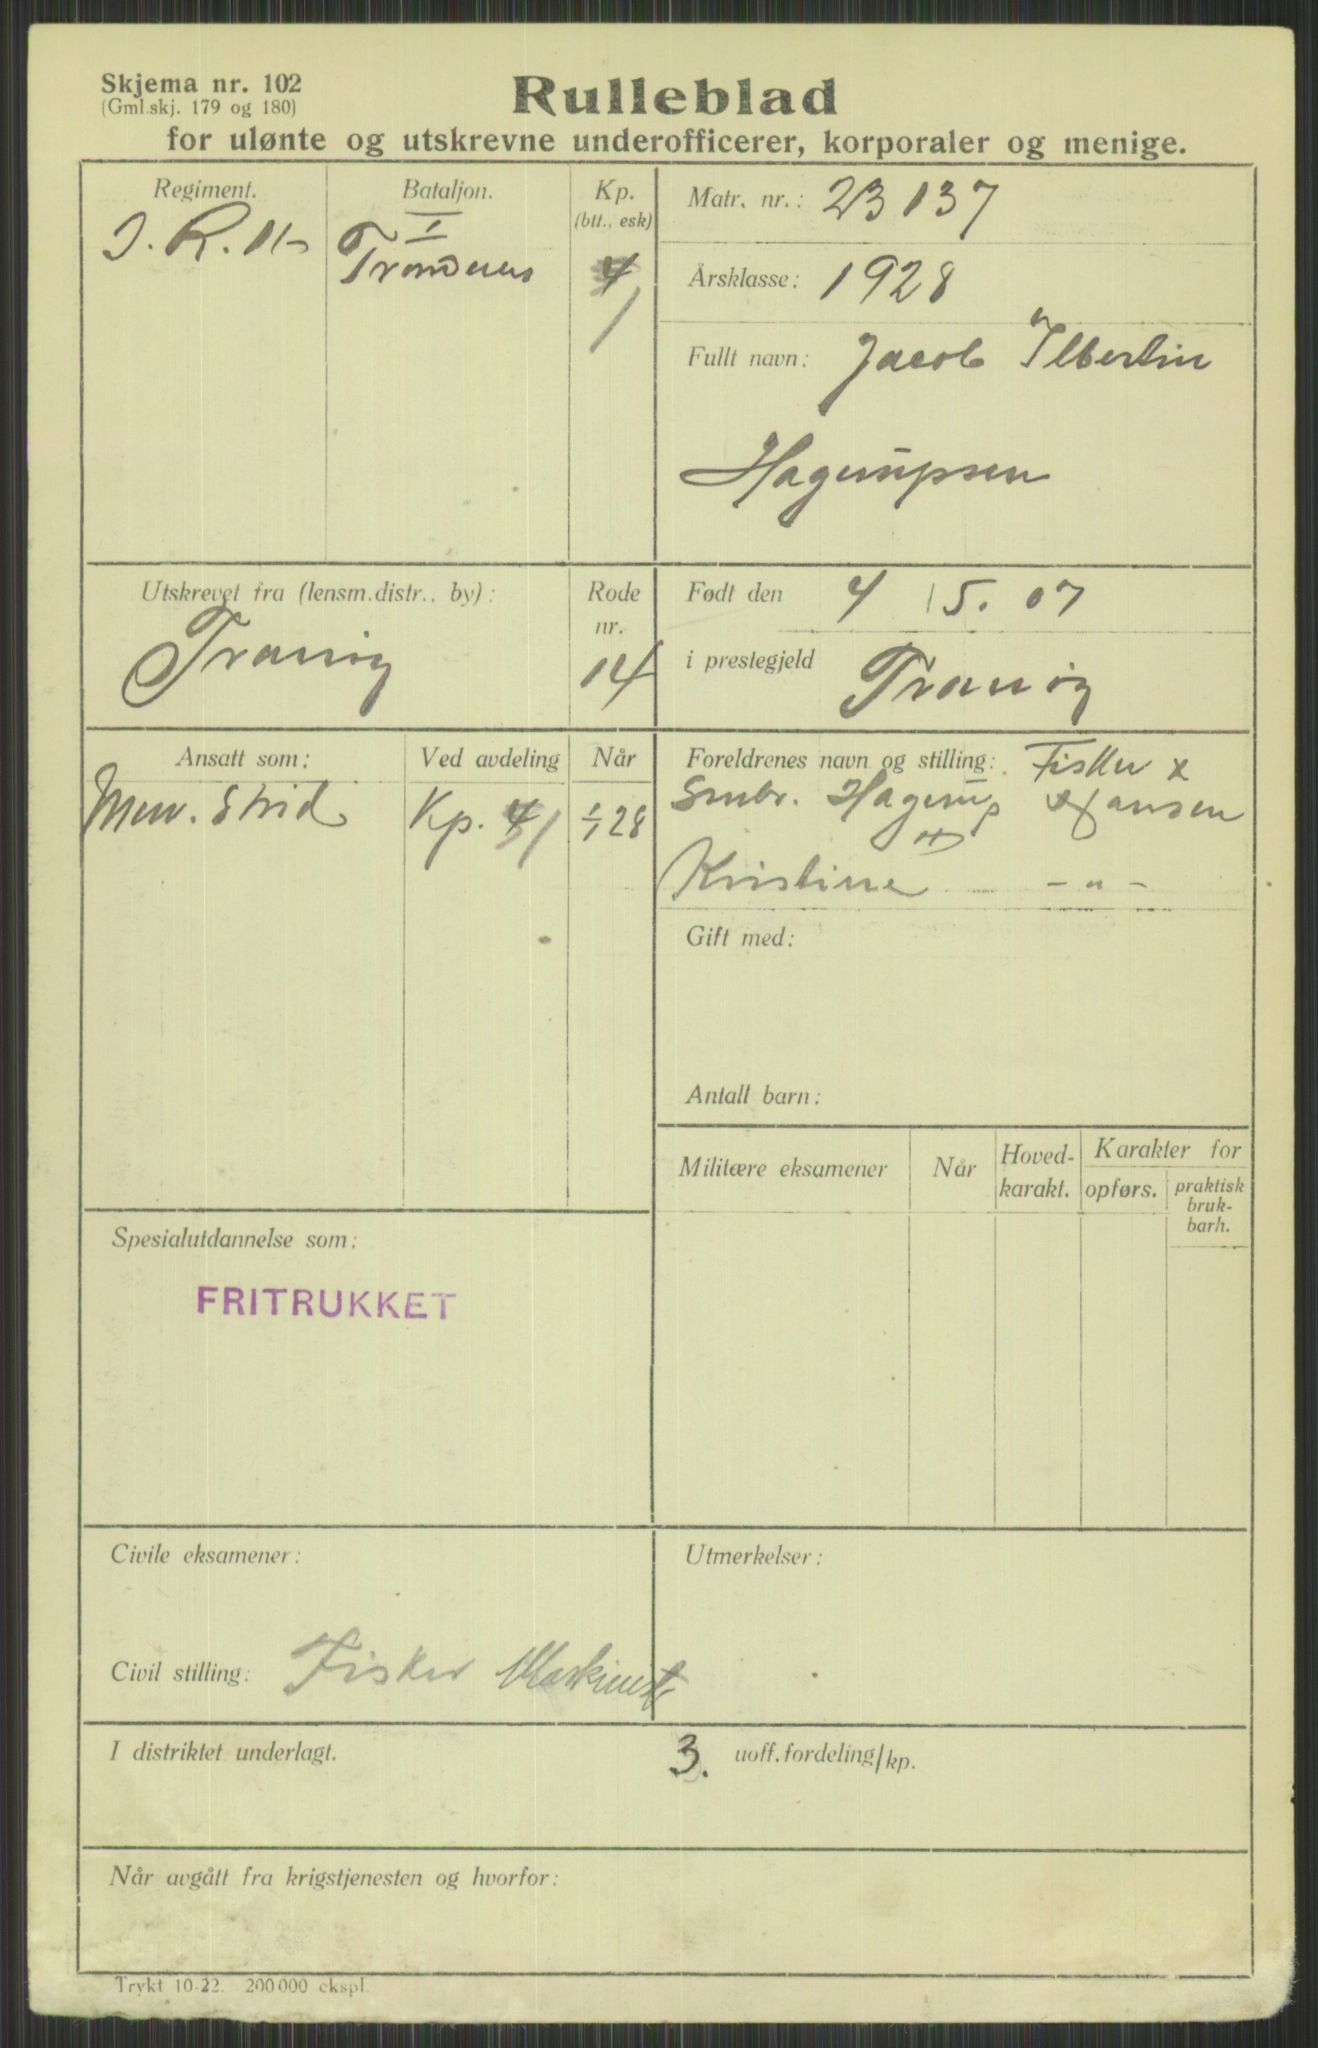 Skjema nr. 102
(Gml.skj. 179 og 180)
Rulleblad
for ulønte og utskrevne underofficerer, korporaler og menige.
Regiment.
I. R. 16
Bataljon.
I
Kp.
(btt., esk)
4
1
Matr. nr.: 23137
Årsklasse: 1928
Fullt navn: Jacob Ilbertin
Hagerupsen
Utskrevet fra (lensm.distr., by):
Tranøy
Rode
nr.
14
Født den 4 / 5. 07
i prestegjeld Tranøy
Ansatt som:
Men. Strid.
Ved avdeling
Kp. 4/1
Når
1/1 28
Foreldrenes navn og stilling: Fisker x
Smbr. Hagerup Hansen
Kristine — „ —
Gift med:
Antall barn:
Militære eksamener
Når
Hoved-
karakt.
Karakter for
opførs.
praktisk
bruk-
barh.
Spesialutdannelse som:
FRITRUKKET
Civile eksamener:
Utmerkelser:
Civil stilling: Fisker Maskinist
I distriktet underlagt.
3. uoff.fordeling/kp.
Når avgått fra krigstjenesten og hvorfor:
Trykt 10-22. 200000 ekspl.